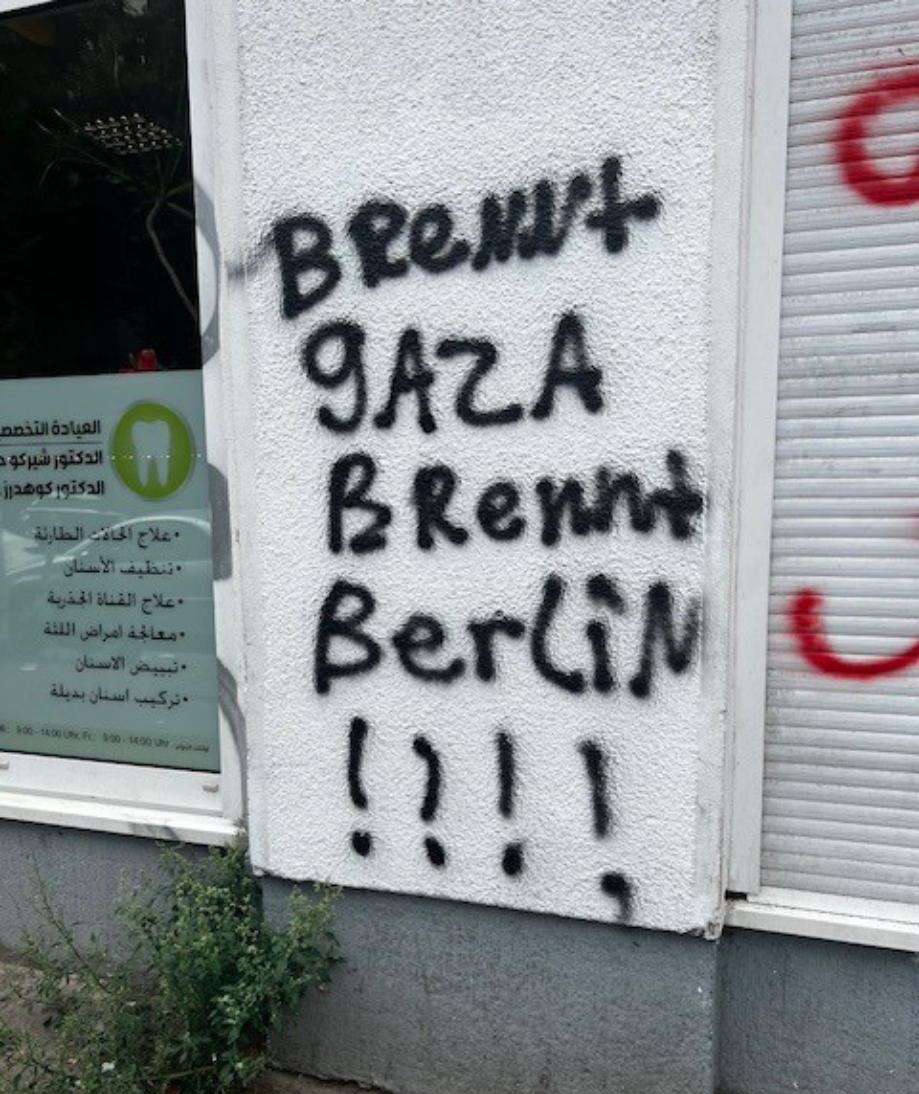 BRennt
gAZA
BRennt
BerLiN
!?!!
العيادة
الدكتور شيركو
الدكتور كوهدرز
•علاج الحالات الطارئة
•تنظيف الأسنان
•علاج القناة الجذرية
•معالجة امراض اللثة
•تبييض الاسنان
•تركيب اسنان بديلة
9:00 - 14:00 Uhr, Fr.: 9:00 - 14:00 Uhr